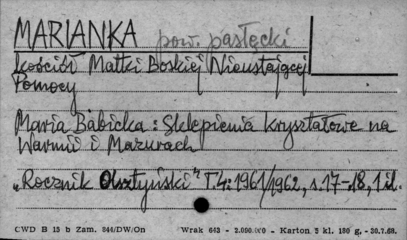 MARIANKA pow. pasłęcki
Kościół Matki Boskiej Nieustającej
Pomocy
Maria Babicka: Sklepienia kryształowe na
Warmii i Mazurach
„Rocznik Olsztyński" T.4: 1961/1962, s. 17-18, 1 il.
CWD B 15 b Zam. 844/DW/On Wrak 643 - 2.090.000 - Karton 2 kl. 180 g, - 30.7.68.